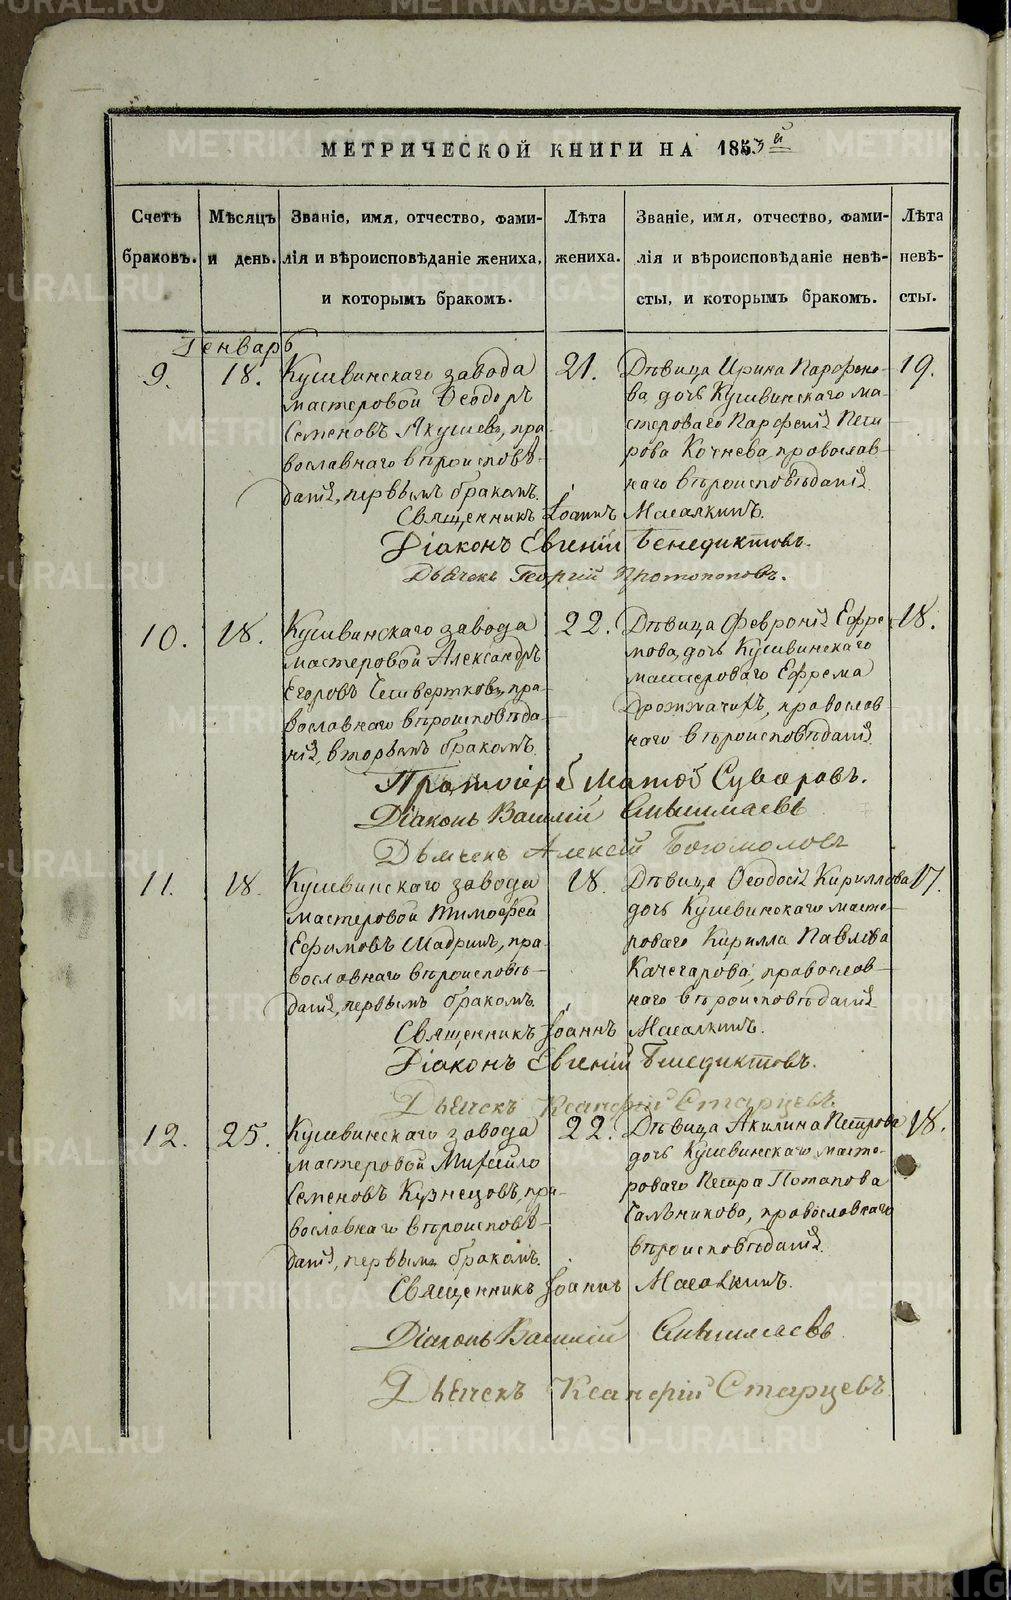 МЕТРИЧЕСКОЙ КНИГИ НА 1853й
Счетъ браковъ.
Мѣсяцъ и день.
Званіе, имя, отчество, фами-
лія и вѣроисповѣданіе жениха,
и которымъ бракомъ.
Лѣта жениха.
Званіе, имя, отчество, фами-
лія и вѣроисповѣданіе невѣ-
сты, и которымъ бракомъ.
Лѣта невѣ-
сты.
Генварь
9.
18.
Кушвинскаго завода
мастеровой Ѳеодоръ
Семеновъ Якушевъ, пра
вославнаго вѣроисповѣ-
данія, первымъ бракомъ.
21.
Дѣвица Ирина Парфено-
ва, дочь Кушвинскаго ма-
стероваго Парфенія Пет
рова Кочнева, православ-
наго вѣроисповѣданія
19.
Священникъ Іоаннъ
Діаконъ Евгеній Бенедиктовъ.
Дьячекъ Георгій Протопоповъ.
10.
18.
Кушвинскаго завода
мастеровой Александръ
Егоровъ Четвертковъ, пра-
вославнаго вѣроисповѣда-
нія, вторымъ бракомъ.
22.
Дѣвица Февронія Ефре-
мова, дочь Кушвинскаго
мастероваго Ефрема
православ
наго вѣроисповѣданія
18.
Протоіерей Матѳей Суворовъ.
Діаконъ Василій
Дьячекъ Алексій Богомоловъ
11.
18.
Кушвинскаго завода
мастеровой Тимофей
Ефимовъ Шадринъ, пра-
вославнаго вѣроисповѣ-
данія, первымъ бракомъ.
18.
Дѣвица Ѳеодосія Кириллова
дочь Кушвинскаго масте-
роваго Кирилла Павлова
Качегарова, православ-
наго вѣроисповѣданія
17.
Священникъ Іоаннъ
Діаконъ Евгеній Бенедиктовъ.
Дьячекъ Старцевъ.
12.
25.
Кушвинскаго завода
мастеровой Михайло
Семеновъ Кузнецовъ, пра-
вославнаго вѣроисповѣ-
данія, первымъ бракомъ.
22.
Дѣвица Акилина Петрова
дочь Кушвинскаго масте-
роваго Петра Потапова
Сальникова, православнаго
вѣроисповѣданія.
18.
Священникъ Іоаннъ
Діаконъ Василій
Дьячекъ Старцевъ
METRIKI.GASO-URAL.RU